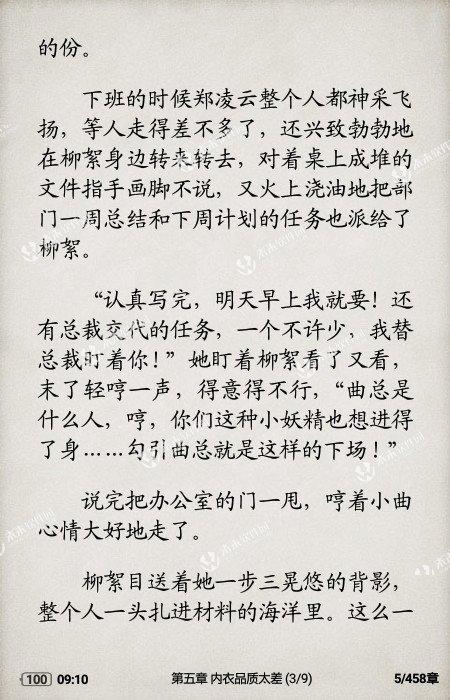 的份。
下班的时候郑凌云整个人都神采飞
扬，等人走得差不多了，还兴致勃勃地
在柳絮身边转来转去，对着桌上成堆的
文件指手画脚不说，又火上浇油地把部
门一周总结和下周计划的任务也派给了
柳絮。
“认真写完，明天早上我就要！还
有总裁交代的任务，一个不许少，我替
总裁盯着你！”她盯着柳絮看了又看，
末了轻哼一声，得意得不行，“曲总是
什么人，哼，你们这种小妖精也想进得
了身……勾引曲总就是这样的下场！”
说完把办公室的门一甩，哼着小曲
心情大好地走了。
柳絮目送着她一步三晃悠的背影，
整个人一头扎进材料的海洋里。这么一
100 09:10 第五章 内衣品质太差 (3/9) 5/458章